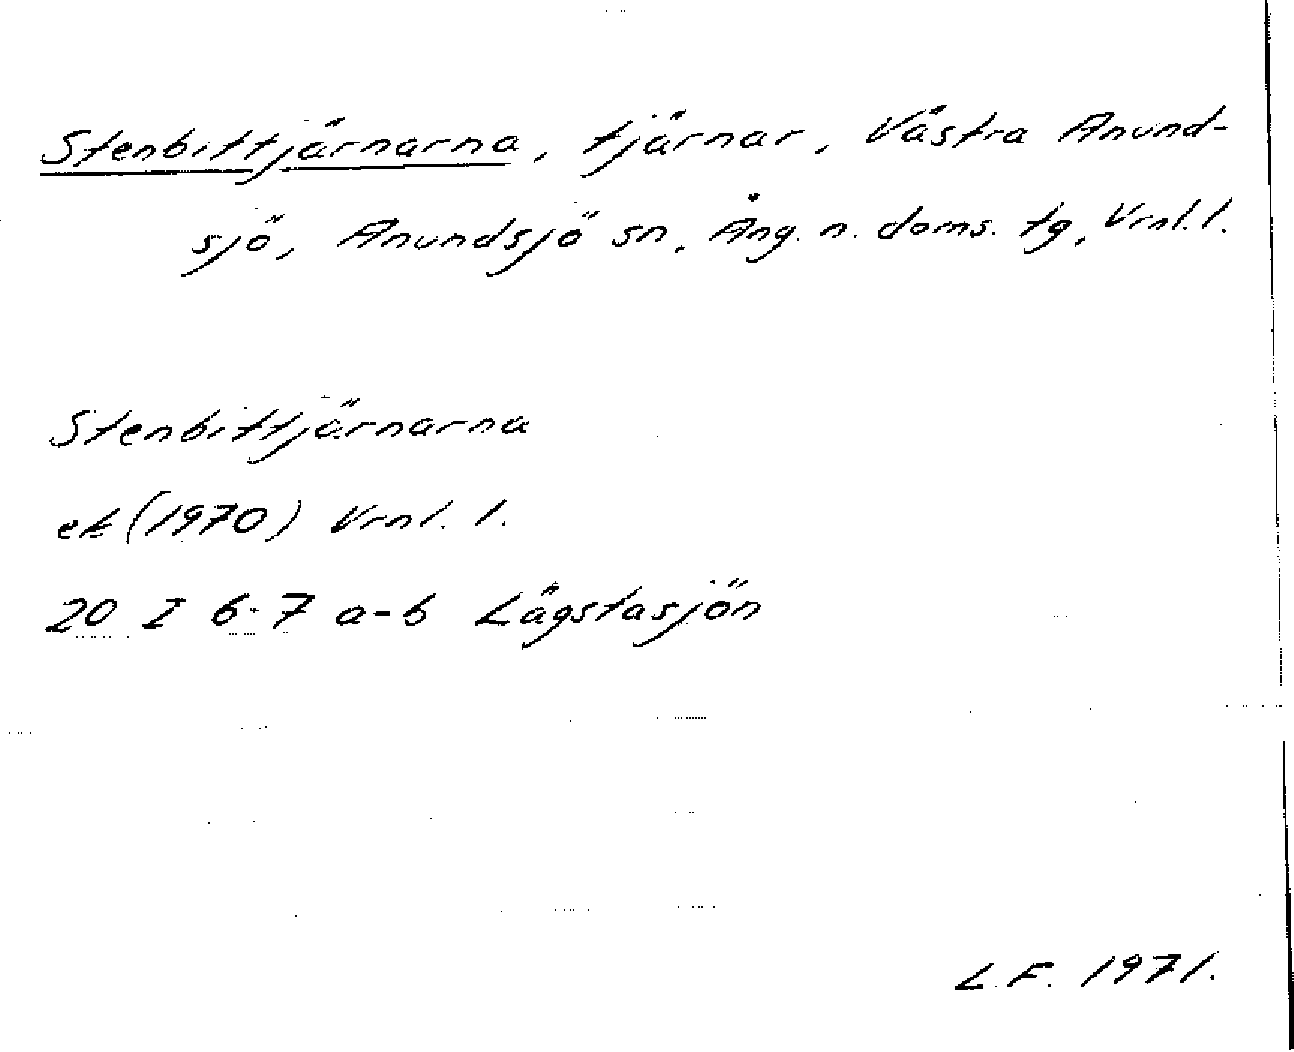 Stenbittjärnarna, tjärnar, Västra Anund-
sjö, Anundsjö sn, Ång. n. doms. tg, Vrnl. l.
Stenbittjärnarna
ek (1970) Vrnl. l.
20 I 6-7 a-b Lägstasjön
L.F. 1971.